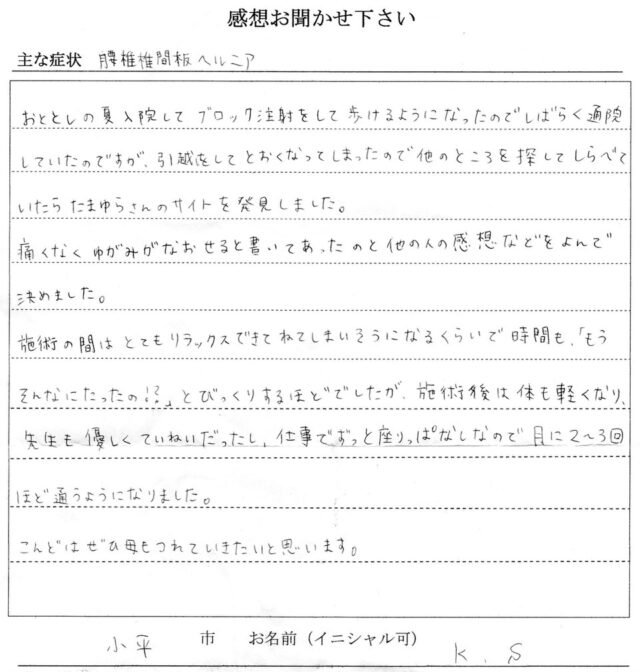 感想お聞かせ下さい
主な症状 腰椎椎間板ヘルニア
おととしの夏入院して ブロック注射をして歩けるようになったのでしばらく通院
していたのですが、引越をしてとおくなってしまったので他のところを探してしらべて
いたら たまゆらさんのサイトを発見しました。
痛くなく ゆがみがなおせると書いてあったのと他の人の感想などをよんで
決めました。
施術の間は とてもリラックスできてねてしまいそうになるくらいで 時間も、「もう
そんなにたったの!?」とびっくりするほどでしたが、施術後は体も軽くなり、
先生も優しくていねいだったし、仕事でずっと座りっぱなしなので月に2〜3回
ほど通うようになりました。
こんどは ぜひ母もつれていきたいと思います。
小平 市 お名前（イニシャル可） K.S